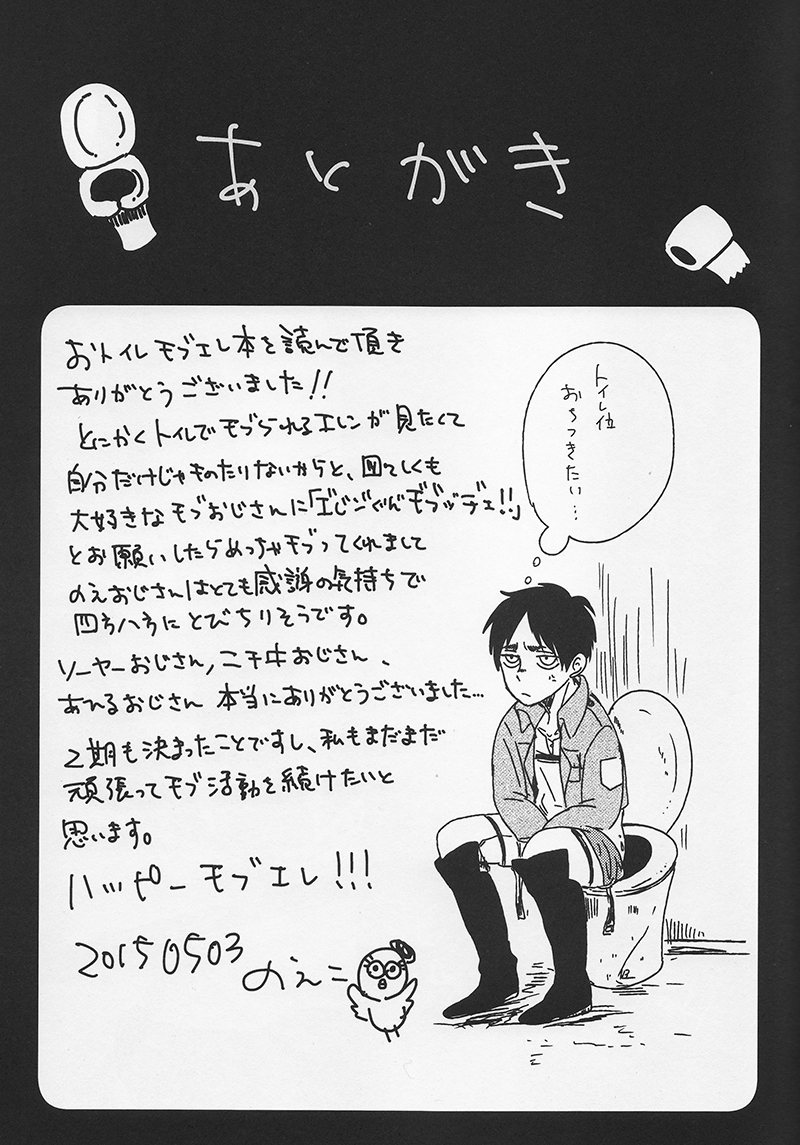 あとがき
おトイレモブエレ本を読んで頂き
ありがとうございました!!
とにかくトイレでモブられるエレンが見たくて
自分だけじゃものたりないからと、図々しくも
大好きなモブおじさんに「エレンぐんモブッデェ!!」
とお願いしたらめっちゃモブってくれまして
のえおじさんはとても感謝の気持ちで
四方八方にとびちりそうです。
ソーヤーおじさん,ニキ中おじさん、
あひるおじさん 本当にありがとうございました…
2期も決まったことですし、私もまだまだ
頑張ってモブ活動を続けたいと
思います。
ハッピーモブエレ!!!
20150503 のえこ
トイレ位
おちつきたい…